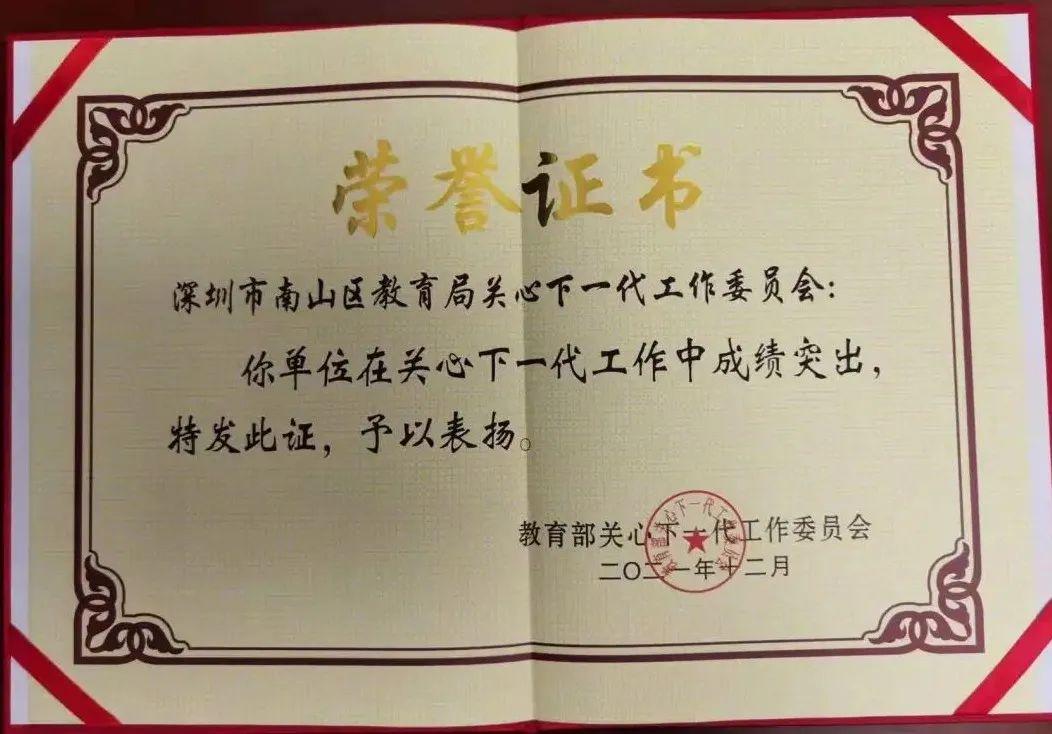 荣誉证书
深圳市南山区教育局关心下一代工作委员会：
你单位在关心下一代工作中成绩突出，
特发此证，予以表扬。
教育部关心下一代工作委员会
二〇二一年十二月
教育部关心下一代工作委员会